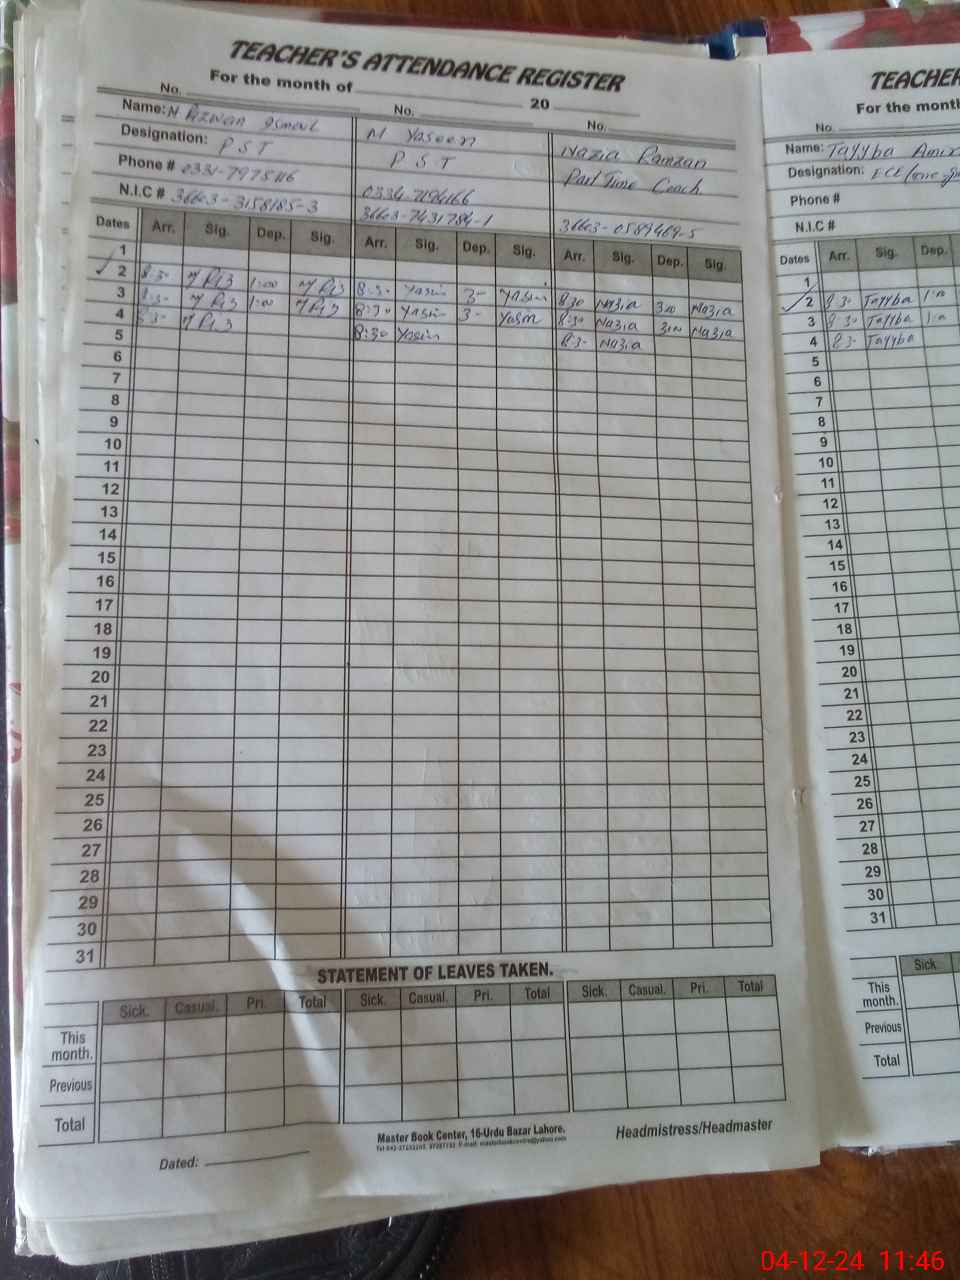 TEACHER'S ATTENDANCE REGISTER
For the month of 20
No. No. No.
Name: M Rizwan Ismail M Yaseen Nazia Ramzan
Designation: P S T P S T Part Time Coach
Phone # 0331-7975116 0334-7694166
N.I.C # 36603-3158185-3 36603-7431784-1 36603-0589469-5
Dates Arr. Sig. Dep. Sig. Arr. Sig. Dep. Sig. Arr. Sig. Dep. Sig.
1
2 8:3- M Riz 1:00 M Riz 8:30 Yasin 3- Yasin 830 Nazia 300 Nazia
3 8:3- M Riz 1:00 M Riz 8:30 Yasin 3- Yasin 8:30 Nazia 300 Nazia
4 8:3- M Riz 8:30 Yasin 8:3- Nazia
5
6
7
8
9
10
11
12
13
14
15
16
17
18
19
20
21
22
23
24
25
26
27
28
29
30
31
STATEMENT OF LEAVES TAKEN.
Sick. Casual. Pri. Total Sick. Casual. Pri. Total Sick. Casual. Pri. Total
This month.
Previous
Total
Master Book Center, 16-Urdu Bazar Lahore.
Headmistress/Headmaster
Dated:
TEACHER
For the month
No.
Name: Tayyba Amir
Designation: ECE
Phone #
N.I.C #
Dates Arr. Sig. Dep.
1
2 8:30 Tayyba 1:00
3 8:30 Tayyba 1:00
4 8:3- Tayyba
5
6
7
8
9
10
11
12
13
14
15
16
17
18
19
20
21
22
23
24
25
26
27
28
29
30
31
Sick
This month.
Previous
Total
04-12-24 11:46